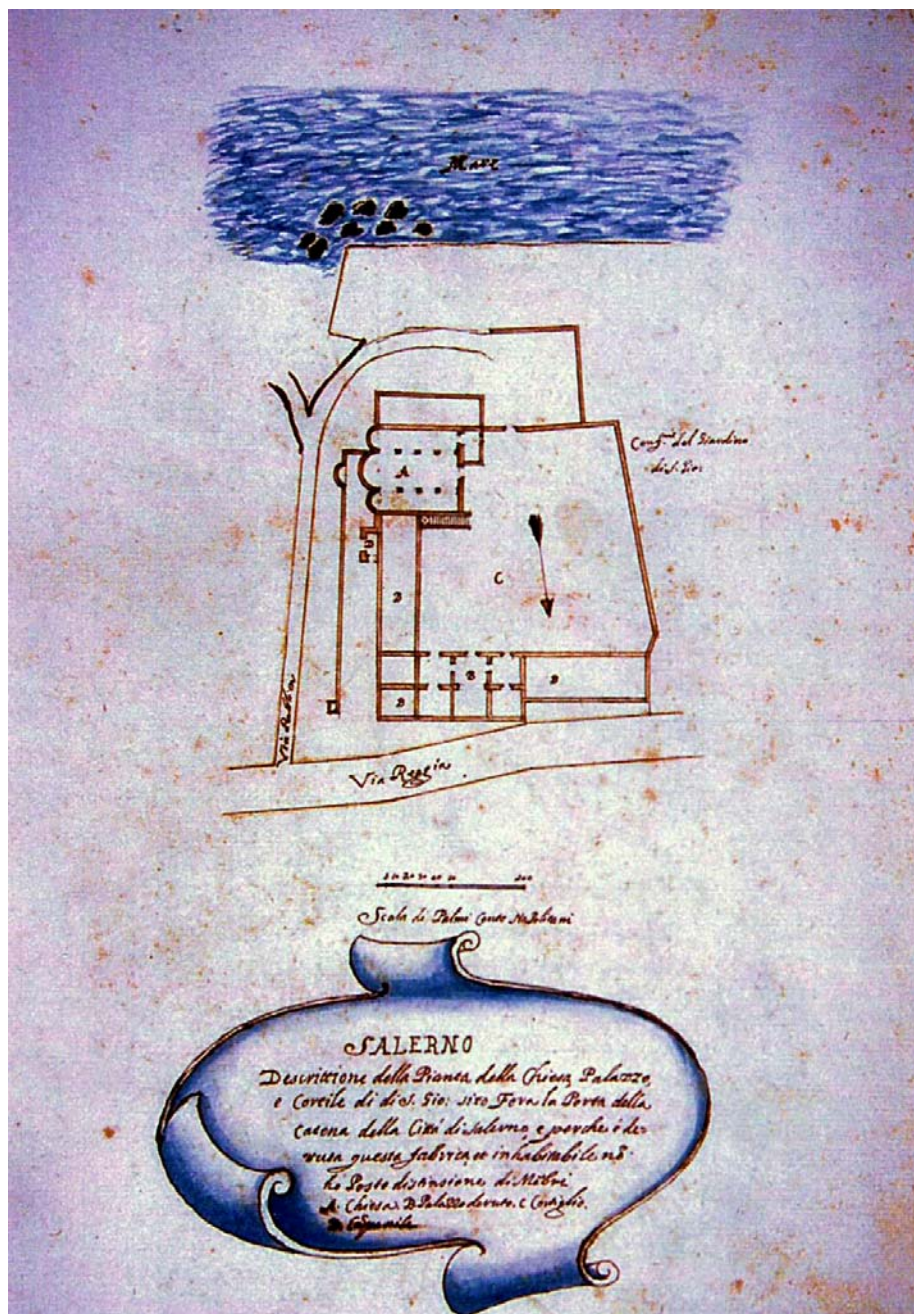 Mare
Conf.ᵐ del Giardino
di S. Gio:
A
B
C
B
B
B
B
Via Publica
Via Reggia
Scala di Palmi Cento Napolitani
SALERNO
Descrittione della Pianta della Chiesa, Palazzo,
e Cortile di di S. Gio: sito Fora la Porta della
Catena della Città di Salerno, e perche è de-
ruta questa fabrica, et inhabitabile nō
ho Posto distinsione di Mēbri
A. Chiesa. B. Palazzo deruto. C. Cortiglio.